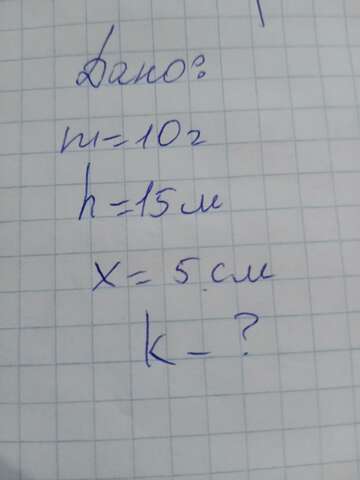 Дано:
m=10г
h=15м
x=5см
k-?